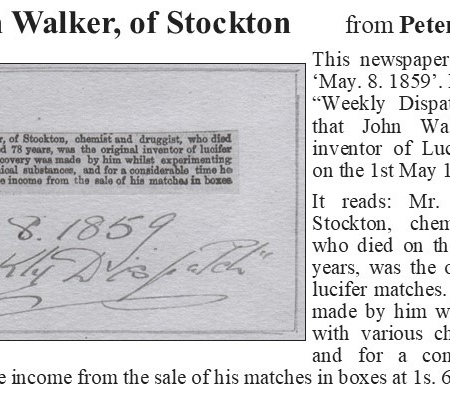 Walker, of Stockton from Peter
This newspaper
‘May. 8. 1859’.
“Weekly Dispat
that John Wa
inventor of Luc
on the 1st May 1
r, of Stockton, chemist and druggist, who died
d 78 years, was the original inventor of lucifer
covery was made by him whilst experimenting
ical substances, and for a considerable time he
e income from the sale of his matches in boxes
8. 1859
kly Dispatch"
It reads: Mr.
Stockton, chem
who died on th
years, was the o
lucifer matches.
made by him w
with various ch
and for a con
e income from the sale of his matches in boxes at 1s. 6